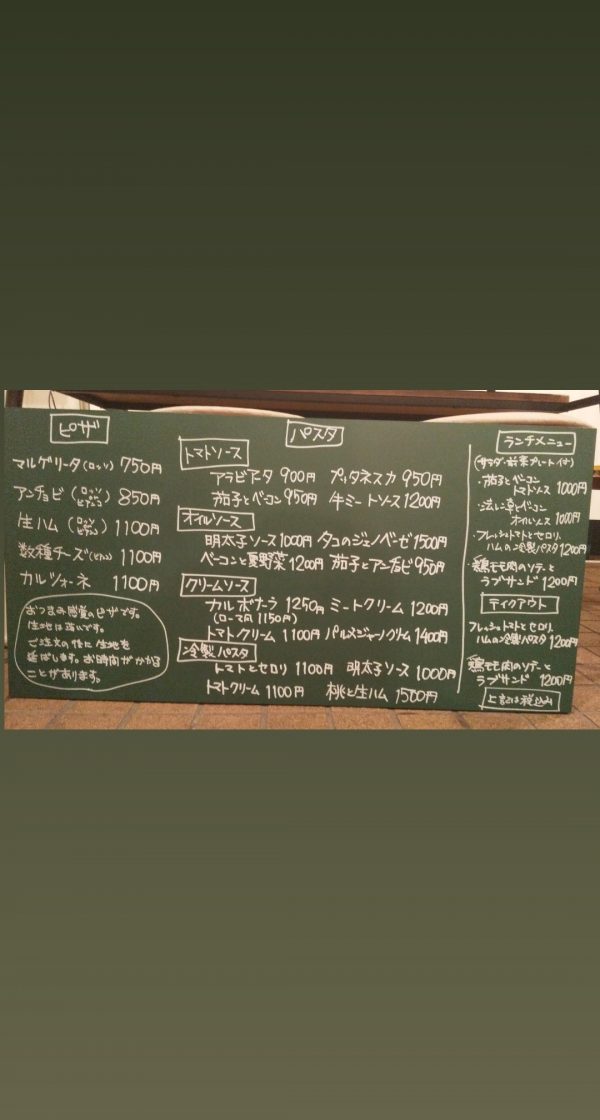 ピザ
マルゲリータ(ロッソ) 750円
アンチョビ(ロッソ ビアンコ) 850円
生ハム(ロッソ ビアンコ) 1100円
数種チーズ(ビアンコ) 1100円
カルツォーネ 1100円
おつまみ感覚のピザです。
生地は薄いです。
ご注文の後に生地を
延ばします。お時間がかかる
ことがあります。
パスタ
トマトソース
アラビアータ 900円 プッタネスカ 950円
茄子とベーコン 950円 牛ミートソース 1200円
オイルソース
明太子ソース 1000円 タコのジェノベーゼ 1500円
ベーコンと夏野菜 1200円 茄子とアンチョビ 950円
クリームソース
カルボナーラ 1250円 ミートクリーム 1200円
(ローマ風 1150円)
トマトクリーム 1100円 パルメジャーノクリーム 1400円
冷製パスタ
トマトとセロリ 1100円 明太子ソース 1000円
トマトクリーム 1100円 桃と生ハム 1500円
ランチメニュー
(サラダ・前菜プレート付)
・茄子とベーコン
トマトソース 1000円
・ほうれん草とベーコン
オイルソース 1000円
・フレッシュトマトとセロリ、
ハムの冷製パスタ 1200円
・鶏モモ肉のソテーと
ラブサンド 1200円
テイクアウト
フレッシュトマトとセロリ、
ハムの冷製パスタ 1200円
鶏モモ肉のソテーと
ラブサンド 1200円
上記は税込み